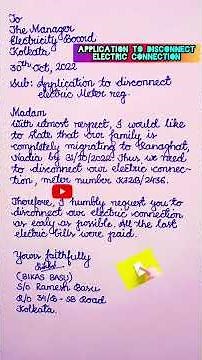 To
The Manager
Electricity Board
Kolkata
APPLICATION TO DISCONNECT
ELECTRIC CONNECTION
30th Oct, 2022
Sub: Application to disconnect
electric Meter reg.
Madam
With utmost respect, I would like
to state that our family is
completely migrating to Ranaghat,
Nadia by 31/10/2022. Thus we need
to disconnect our electric connec-
tion, meter number
Therefore, I humbly request you to
disconnect our electric connection
as early as possible. All the last
electric bills were paid.
Yours faithfully
(BIKAS BASU)
S/o Ramesh Basu
R/o 34/G - SB Road
Kolkata.